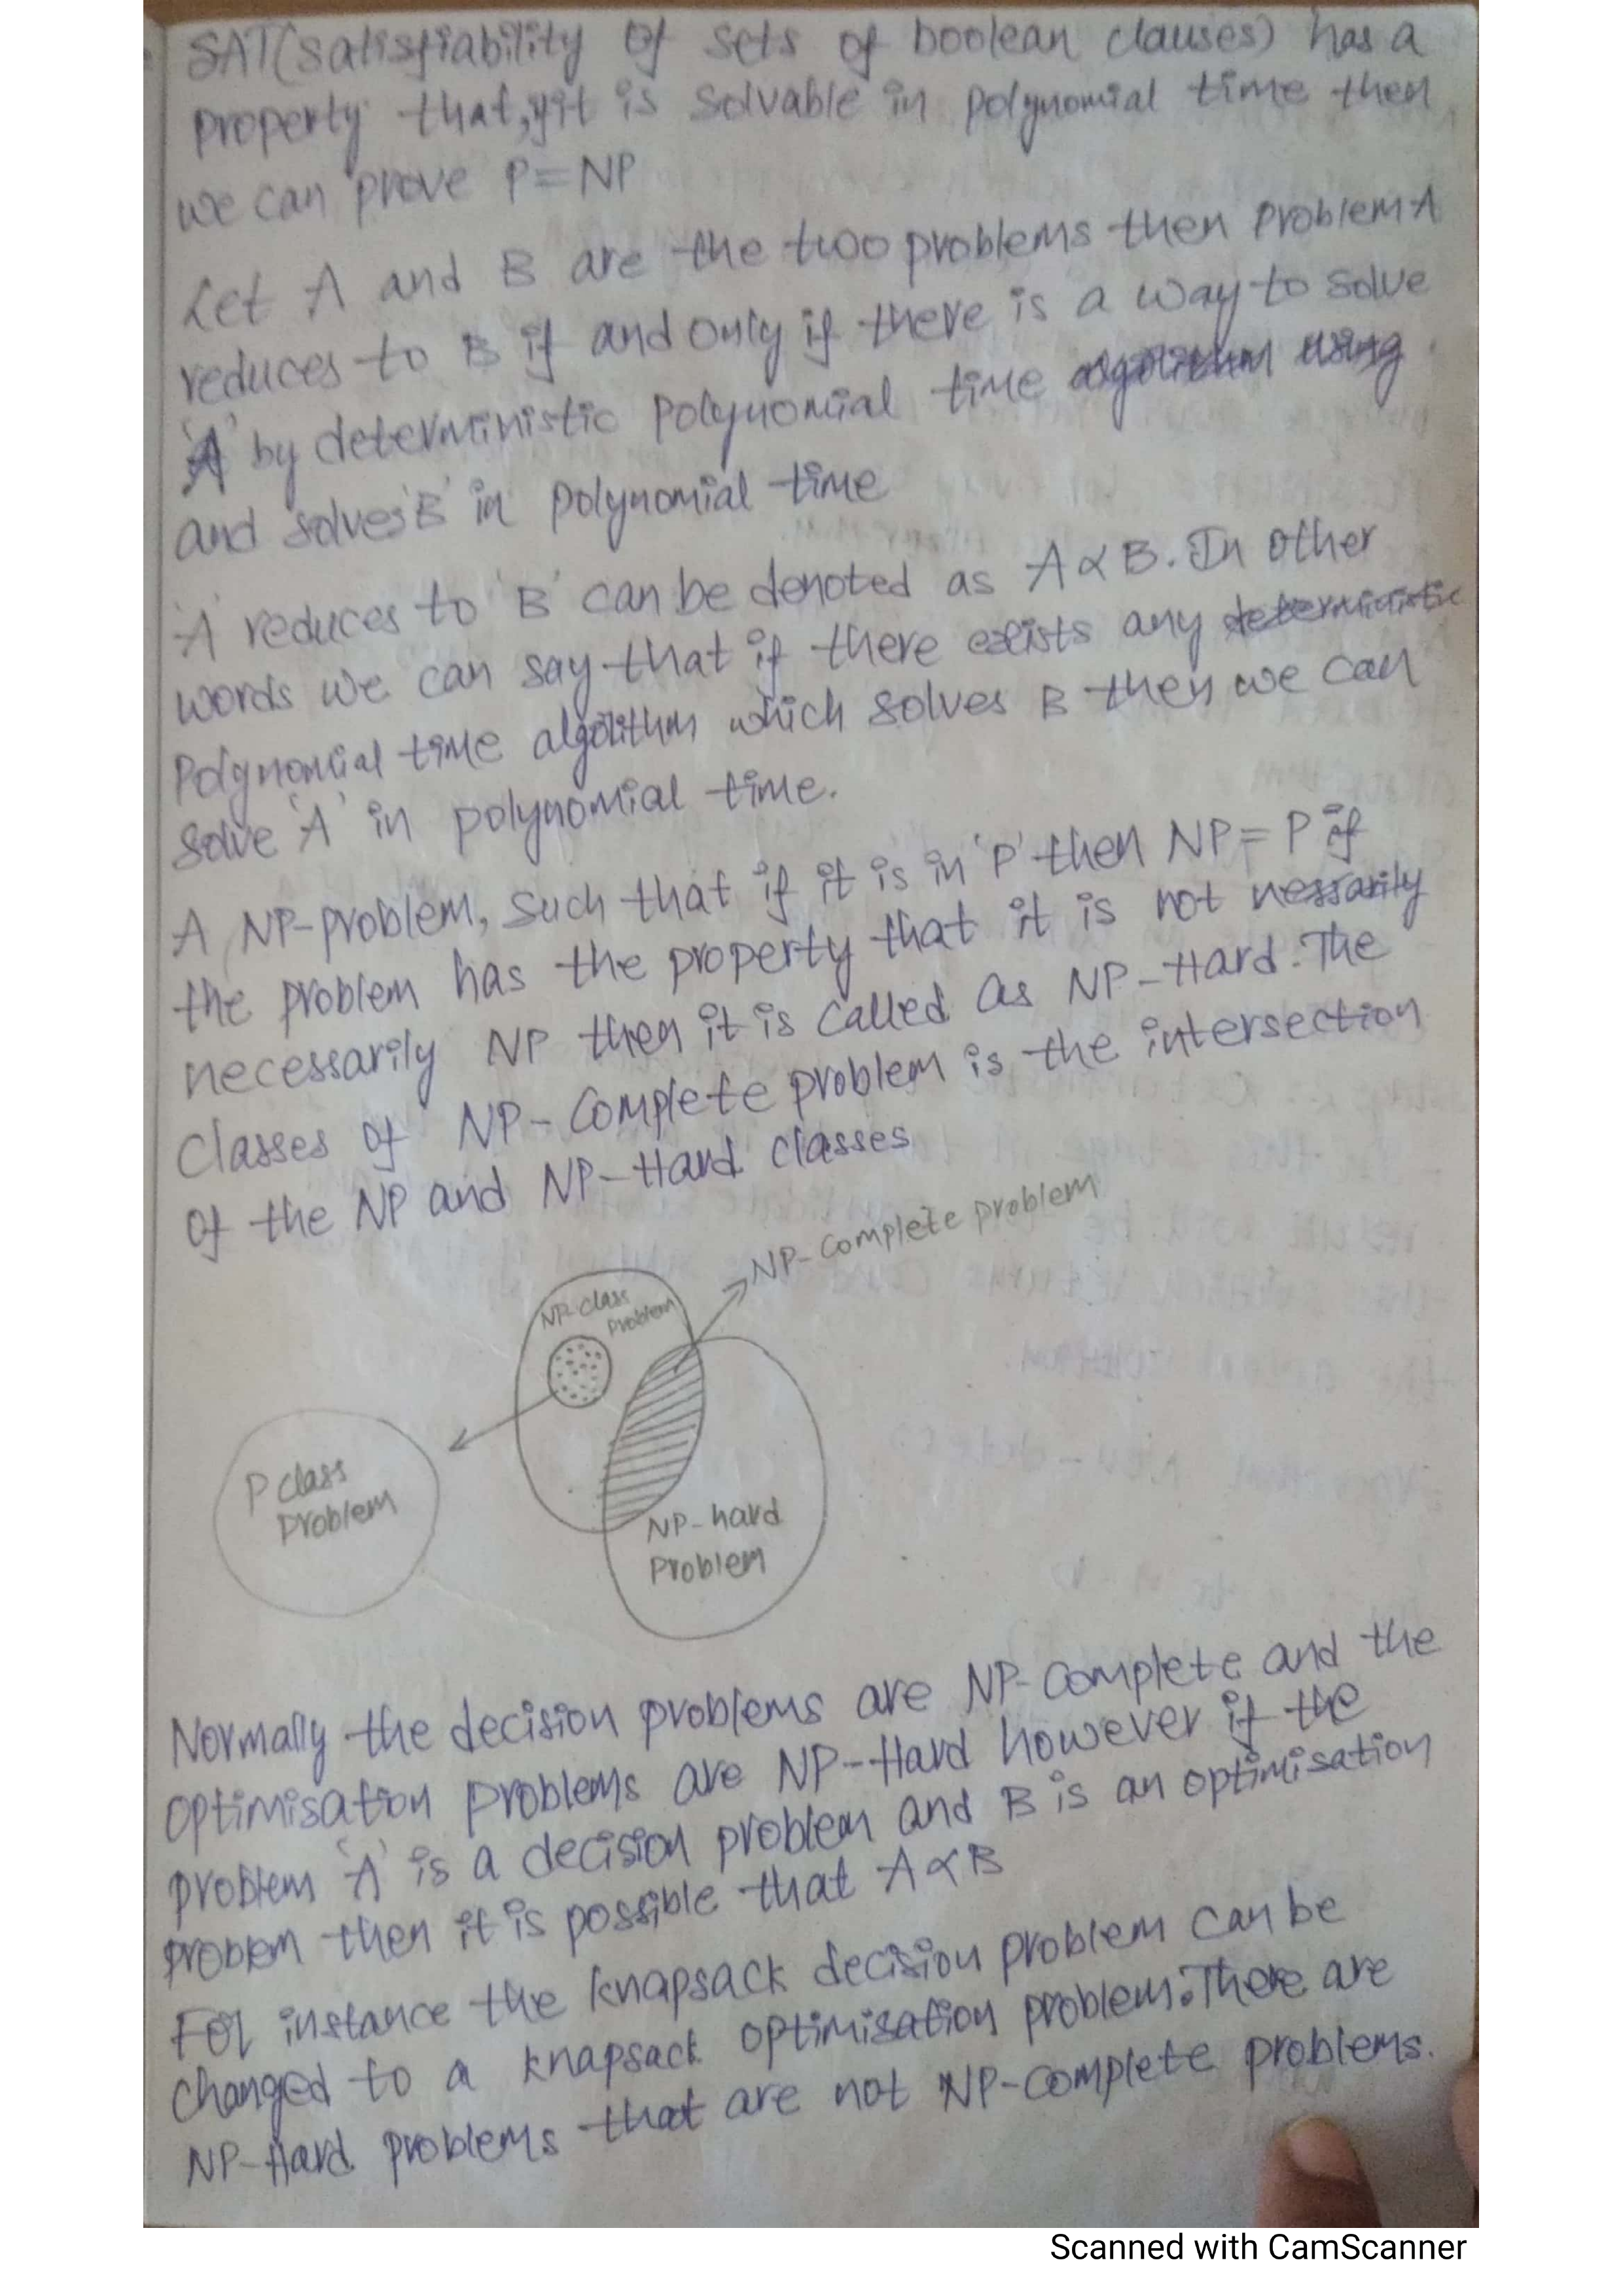 SAT(satisfiability of sets of boolean clauses) has a
property that, if it is solvable in polynomial time then
we can prove P=NP
Let A and B are the two problems then problem A
reduces to B if and only if there is a way to solve
'A' by deterministic polynomial time algorithm using
and solves 'B' in polynomial time
'A' reduces to 'B' can be denoted as A∝B. In other
words we can say that if there exists any deterministic
polynomial time algorithm which solves B then we can
solve 'A' in polynomial time.
A NP-problem, such that if it is in 'P' then NP=P if
the problem has the property that it is not nessarily
necessarily NP then it is called as NP-Hard. The
classes of NP-Complete problem is the intersection
of the NP and NP-Hard classes
NP-Complete problem
NP-class
problem
P class
problem
NP-hard
Problem
Normally the decision problems are NP-complete and the
optimisation problems are NP-Hard however if the
problem 'A' is a decision problem and B is an optimisation
problem then it is possible that A∝B
For instance the knapsack decision problem can be
changed to a knapsack optimisation problem. There are
NP-Hard problems that are not NP-complete problems.
Scanned with CamScanner